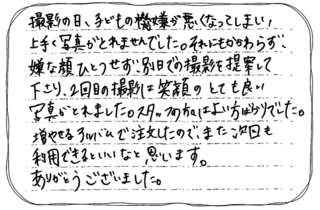 撮影の日、子どもの機嫌が悪くなってしまい、
上手く写真がとれませんでした。それにもかかわらず、
嫌な顔ひとつせず、別日での撮影を提案して
下さり、2回目の撮影は笑顔のとても良い
写真がとれました。スタッフの方はよい方ばかりでした。
増やせるアルバムで注文したので、また次回も
利用できるといいなと思います。
ありがとうございました。